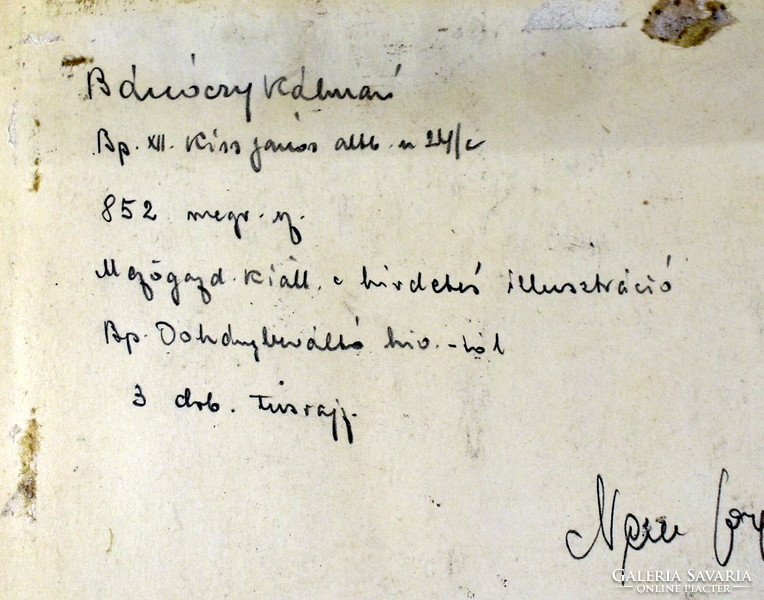 Bánóczy Kálmán
Bp. XII. Kiss János altb. u 24/c
852 megr. sz.
Mezőgazd. Kiáll. c hirdetés illusztráció
Bp. Dohánybeváltó hiv.-tól
3 drb. tusrajz.
GALÉRIA SAVARIA
ONLINE PIACTÉR